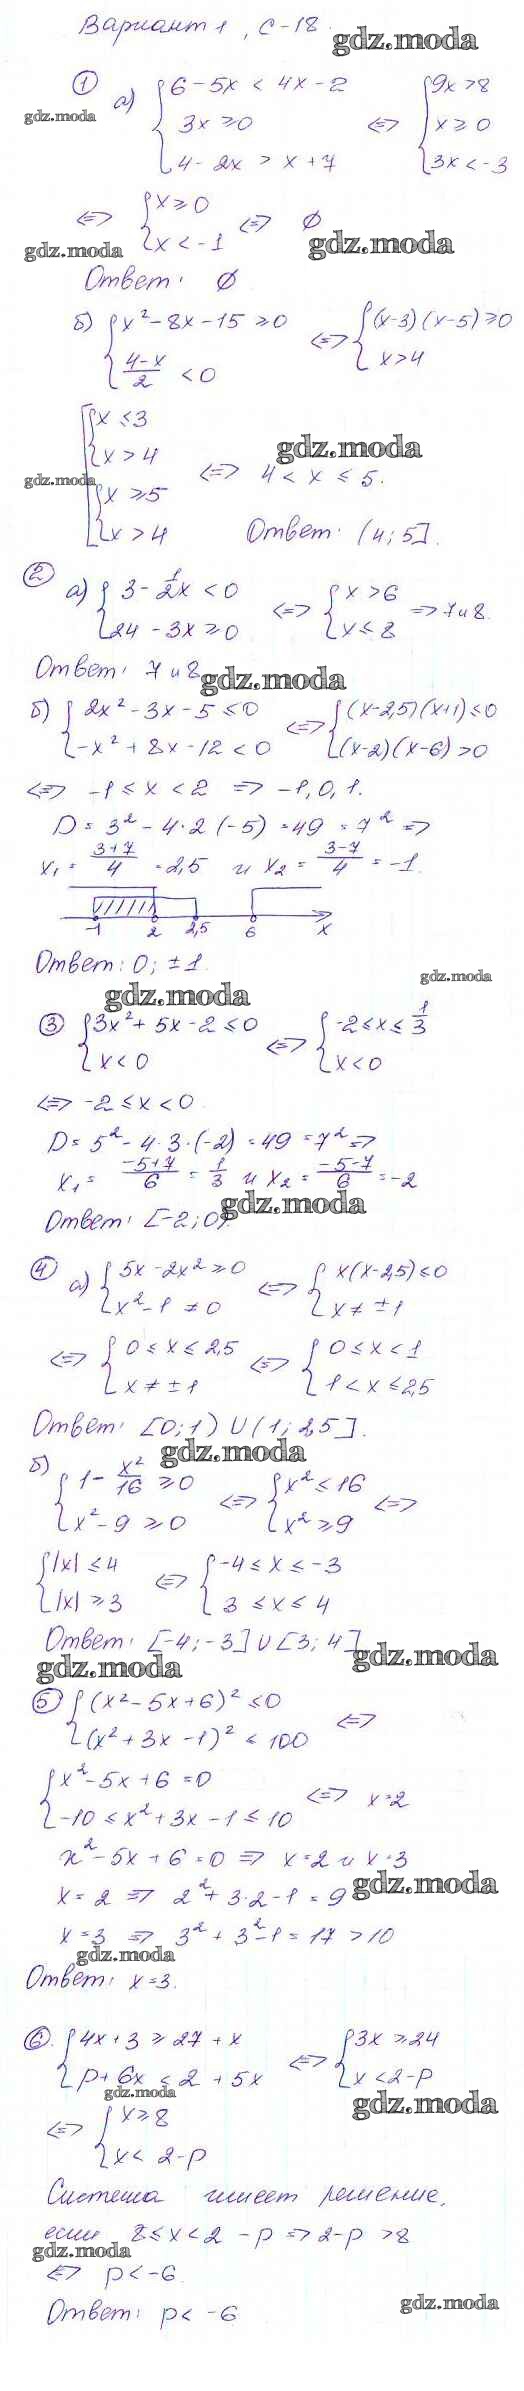 Вариант 1, С-18.
gdz.moda
① а) { 6 - 5x < 4x - 2
3x ≥ 0
4 - 2x > x + 7
⇔ { 9x > 8
x ≥ 0
3x < -3
gdz.moda
⇔ { x ≥ 0
x < -1
⇔ ∅
gdz.moda
gdz.moda
Ответ: ∅
б) { x² - 8x - 15 ≥ 0
(4-x)/2 < 0
⇔ { (x-3)(x-5) ≥ 0
x > 4
[ { x ≤ 3
x > 4
{ x ≥ 5
x > 4
⇔ 4 < x ≤ 5.
gdz.moda
gdz.moda
Ответ: (4; 5].
② а) { 3 - 1/2x < 0
24 - 3x ≥ 0
⇔ { x > 6
x ≤ 8
⇒ 7 и 8.
Ответ: 7 и 8
gdz.moda
б) { 2x² - 3x - 5 ≤ 0
-x² + 8x - 12 < 0
⇔ { (x-2,5)(x+1) ≤ 0
(x-2)(x-6) > 0
⇔ -1 ≤ x < 2 ⇒ -1, 0, 1.
D = 3² - 4·2(-5) = 49 = 7² ⇒
x₁ = (3+7)/4 = 2,5 и x₂ = (3-7)/4 = -1.
-1 2 2,5 6 x
Ответ: 0; ±1.
gdz.moda
gdz.moda
③ { 3x² + 5x - 2 ≤ 0
x < 0
⇔ { -2 ≤ x ≤ 1/3
x < 0
⇔ -2 ≤ x < 0.
D = 5² - 4·3·(-2) = 49 = 7² ⇒
x₁ = (-5+7)/6 = 1/3 и x₂ = (-5-7)/6 = -2
gdz.moda
Ответ: [-2; 0).
④ а) { 5x - 2x² ≥ 0
x² - 1 ≠ 0
⇔ { x(x-2,5) ≤ 0
x ≠ ±1
⇔ { 0 ≤ x ≤ 2,5
x ≠ ±1
⇔ { 0 ≤ x < 1
1 < x ≤ 2,5
Ответ: [0; 1) ∪ (1; 2,5].
gdz.moda
б) { 1 - x²/16 ≥ 0
x² - 9 ≥ 0
⇔ { x² ≤ 16
x² ≥ 9
⇔
{ |x| ≤ 4
|x| ≥ 3
⇔ { -4 ≤ x ≤ -3
3 ≤ x ≤ 4
Ответ: [-4; -3] ∪ [3; 4]
gdz.moda
gdz.moda
⑤ { (x² - 5x + 6)² ≤ 0
(x² + 3x - 1)² ≤ 100
⇔
{ x² - 5x + 6 = 0
-10 ≤ x² + 3x - 1 ≤ 10
⇔ x = 2
x² - 5x + 6 = 0 ⇒ x = 2 и x = 3
gdz.moda
x = 2 ⇒ 2² + 3·2 - 1 = 9
x = 3 ⇒ 3² + 3² - 1 = 17 > 10
gdz.moda
Ответ: x = 3.
⑥. { 4x + 3 ≥ 27 + x
p + 6x < 2 + 5x
⇔ { 3x ≥ 24
x < 2 - p
gdz.moda
gdz.moda
⇔ { x ≥ 8
x < 2 - p
Система имеет решение,
если 8 ≤ x < 2 - p ⇒ 2 - p > 8
gdz.moda
⇔ p < -6.
gdz.moda
Ответ: p < -6